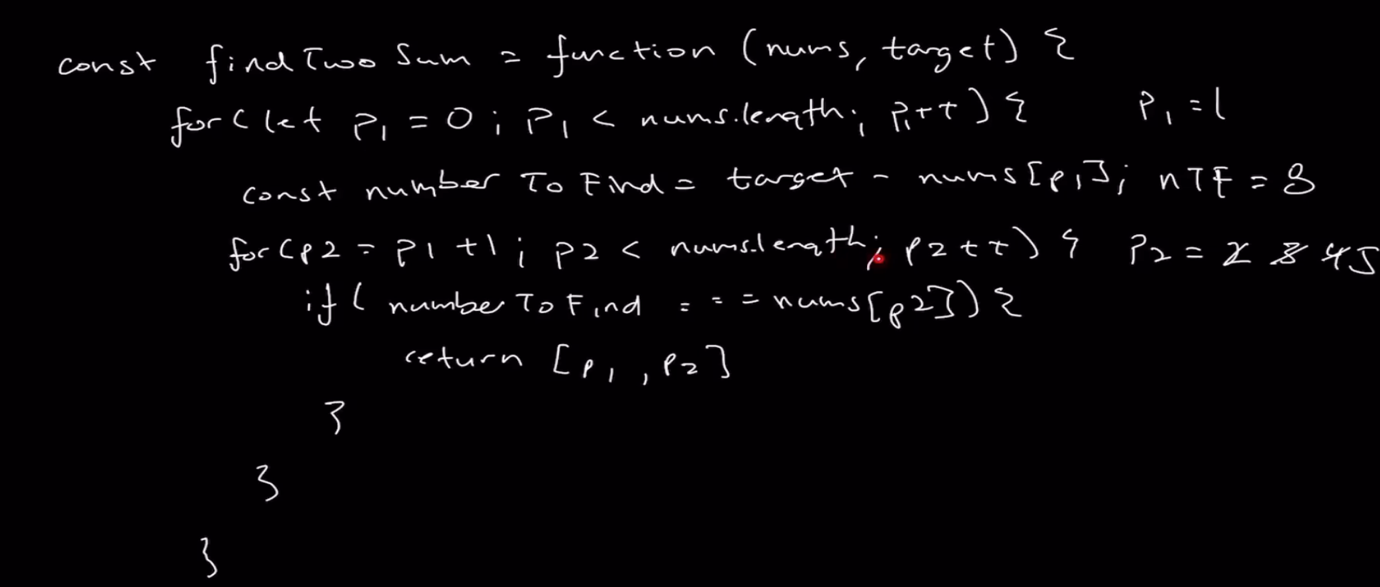 const findTwoSum = function (nums, target) {
for(let p1 = 0; p1 < nums.length; p1++) { p1 = 1
const numberToFind = target - nums[p1]; nTF = 8
for(p2 = p1+1; p2 < nums.length; p2++) { p2 = 2 3 4 5
if( numberToFind === nums[p2]) {
return [p1, p2]
}
}
}